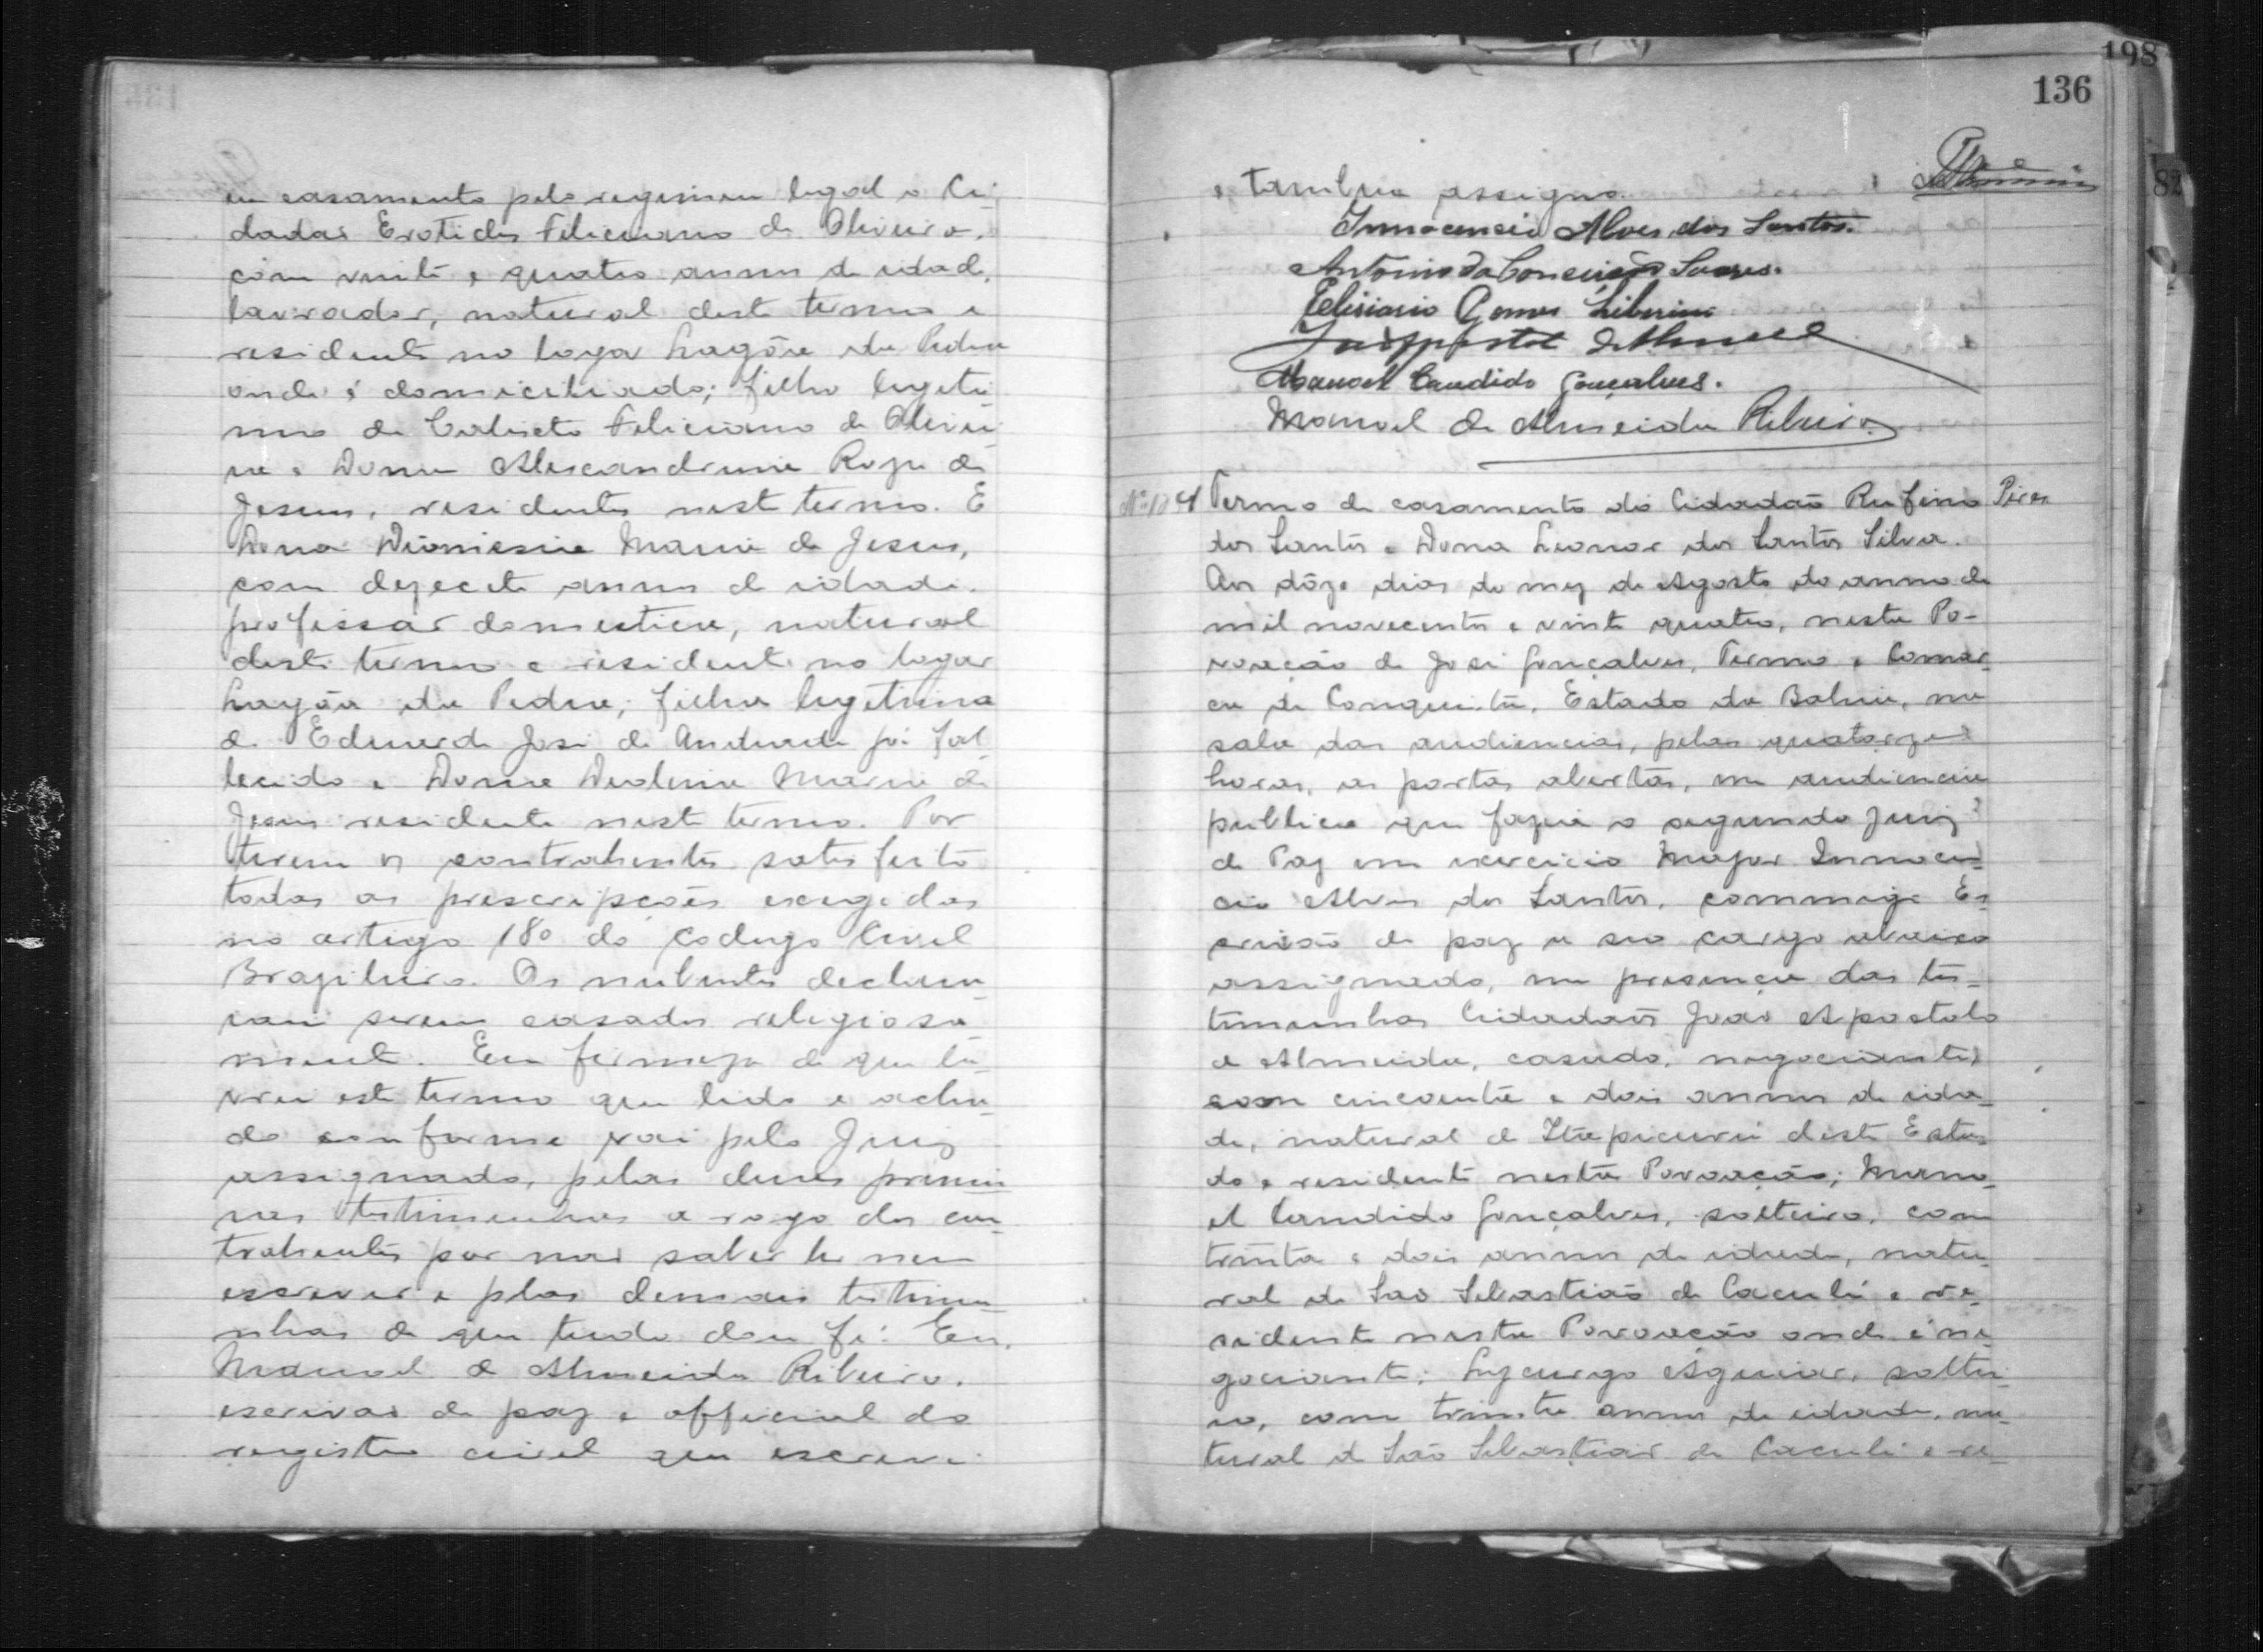 em casamento pelo regimen legal o Ci-
dadão Erotides Feliciano de Oliveira,
com vinte e quatro annos de idade,
lavrador, natural deste termo e
residente no logar Lagôa da Pedra
onde é domiciliado; filho legiti-
mo de Calixto Feliciano de Olivei-
ra e Dona Alexandrina Roza de
Jesus, residentes neste termo. E
Dona Dionisia Maria de Jesus,
com dezecete annos de idade.
professar domestica, natural
deste termo e residente no logar
Lagôa da Pedra; filha legitima
de Eduardo José de Andrade já fal
lecido e Dona Maria de
Jesus residente neste termo. Por
terem os contrahentes satisfeito
todas as prescripções exegidas
no artigo 180 do Codigo Civel
Brazileiro. Os nubentes declara-
ram serem casados religiosa
mente. Em firmeza do que la-
vrei este termo que lido e acha-
do conforme vai pelo Juiz
assignado, pelas duas primei
ras testimunhas a rogo dos con-
trahentes por nao saber ler nem
escrever e pelas demais testimu-
nhas do que tudo dou fé. Eu,
Manoel de Almeida Ribeiro,
escrivao de paz e official do
registro civel que escrevi
136
198
82
e tambem assigno.
Innocencio Alves dos Santos.
Antonio da Conceição Soares.
Elisiario Gomes Liberino
João Apostolo d'Almeida
Manoel Candido Gonçalves.
Manoel de Almeida Ribeiro
Nº 174 Termo de casamento do Cidadão Rufino Pires
dos Santos e Dona Leonor dos Santos Silva.
Aos dôze dias do mez de Agosto do anno de
mil novecentos e vinte quatro, nesta Po-
voação de José Gonçalves, Termo e Comar-
ca de Conquista, Estado da Bahia, na
sala das audiencias, pelas quatorze
horas, as portas abertas, em audiencia
publica que fazia o segundo Juiz
de Paz em exercicio Major Innocen-
cio Alves dos Santos, commigo Es-
crivão de paz a seu cargo abaixo
assignado, em presença das tes-
timunhas Cidadãos João Apostolo
d Almeida, casado, negociante,
com cincoenta e dois annos de ida-
de, natural de Itapicurú deste Esta-
do e residente nesta Povoação; Mano-
el Candido Gonçalves, solteiro, com
trinta e dois annos de idade, natu-
ral de São Sebastião de Caculé e re-
sidente nesta Povoação onde é ne-
gociante; Lycurgo Aguiar, soltei-
ro, com trinta annos de idade, na-
tural de São Sebastião de Caculé e re-